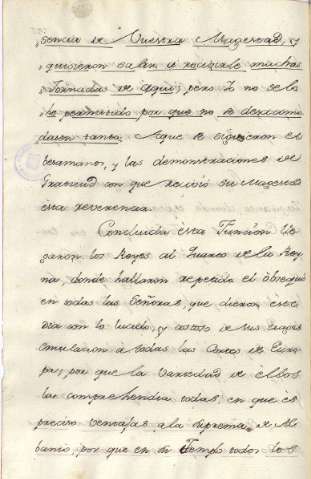 sencia de Vuestra Magestad, y
quisieron salir a recivirle muchas
Jornadas de aqui; pero Yo no se lo
he permitido por que no se
dasen tanto. Aque se siguieron el
besamanos, y las demonstraciones de
Gratitud con que recivió su Magestad
esta reverencia.
Concluida esta Funcion lle
garon los Reyes al Quarto de la Rey
na, donde hallaron repetido el obsequio
en todas las Señoras, que dieron este
dia con lo lucido, y de sus
emulacion à todas las Cortes de Euro
pa; por que la variedad de ellas
las comprehendia todas, en que es
preciso ventajas a la suprema de
por que en su Tiempo todos los